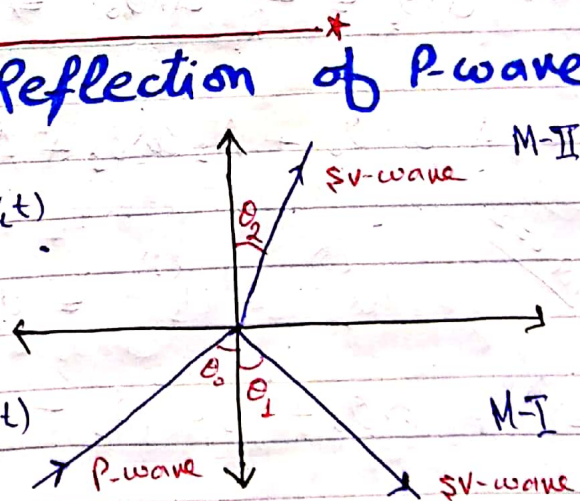 Reflection of P-wave
M-II
SV-wave
,t)
θ2
θ0
θ1
t)
M-I
P-wave
SV-wave